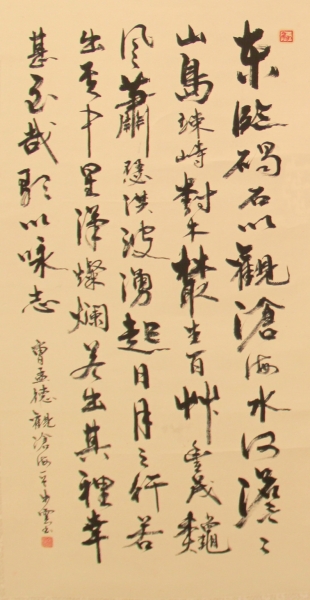 東臨碣石以觀滄海水何澹〻
山島竦峙樹木叢生百艸豐茂龝
風蕭瑟洪波湧起日月之行若
出其中星漢燦爛若出其裡幸
甚至哉歌以咏志
曹孟德觀滄海